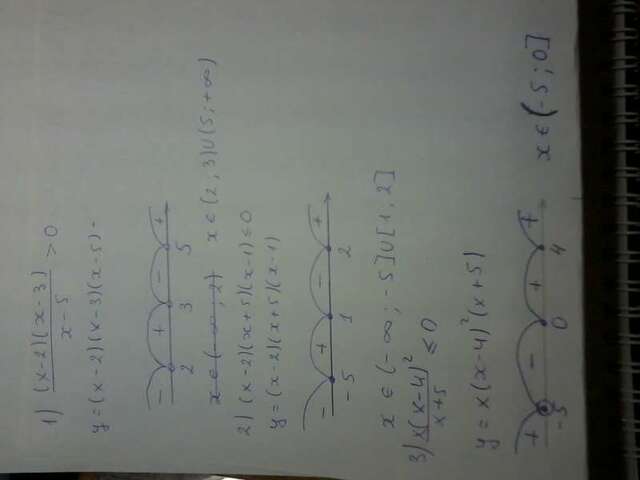 1) (x-2)(x-3)/x-5 > 0
y=(x-2)(x-3)(x-5)-
- + - +
2 3 5
x∈(-∞; 2) x∈(2;3)∪(5;+∞)
2) (x-2)(x+5)(x-1)≤0
y=(x-2)(x+5)(x-1)
- + - +
-5 1 2
x∈(-∞;-5]∪[1,2]
3) x(x-4)²/x+5 ≤0
y=x(x-4)²(x+5)
+ - + +
-5 0 4
x∈(-5;0]